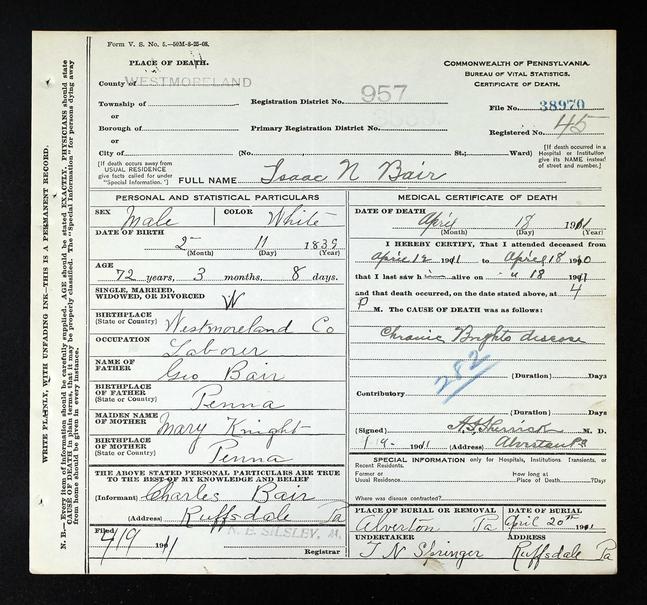 Form V. S. No. 5.—50M-8-25-08.
PLACE OF DEATH.
County of WESTMORELAND
Township of
or
Borough of
or
City of (No. , St.; Ward)
COMMONWEALTH OF PENNSYLVANIA.
BUREAU OF VITAL STATISTICS.
CERTIFICATE OF DEATH.
Registration District No. 957
Primary Registration District No.
File No. 38970
Registered No. 45
[If death occurred in a Hospital or Institution give its NAME instead of street and number.]
[If death occurs away from USUAL RESIDENCE give facts called for under "Special Information."]
FULL NAME Isaac N Bair
PERSONAL AND STATISTICAL PARTICULARS
SEX Male COLOR White
DATE OF BIRTH
2 11 1839
(Month) (Day) (Year)
AGE
72 years, 3 months, 8 days.
SINGLE, MARRIED,
WIDOWED, OR DIVORCED W
BIRTHPLACE
(State or Country) Westmoreland Co
OCCUPATION Laborer
NAME OF
FATHER Geo Bair
BIRTHPLACE
OF FATHER
(State or Country) Penna
MAIDEN NAME
OF MOTHER Mary Knight
BIRTHPLACE
OF MOTHER
(State or Country) Penna
THE ABOVE STATED PERSONAL PARTICULARS ARE TRUE
TO THE BEST OF MY KNOWLEDGE AND BELIEF
(Informant) Charles Bair
(Address) Ruffsdale Pa
Filed 4/19 1911
Registrar
MEDICAL CERTIFICATE OF DEATH
DATE OF DEATH
April 18 1911
(Month) (Day) (Year)
I HEREBY CERTIFY, That I attended deceased from
April 12 1911 to April 18 1910
that I last saw h alive on 18 1911
and that death occurred, on the date stated above, at 4
P M. The CAUSE OF DEATH was as follows:
Chronic Brights disease
282
(Duration) Days
Contributory
(Duration) Days
(Signed) M. D.
19 1911 (Address) Alverton Pa
SPECIAL INFORMATION only for Hospitals, Institutions, Transients, or Recent Residents.
Former or
Usual Residence
How long at
Place of Death ?Days
Where was disease contracted?
PLACE OF BURIAL OR REMOVAL DATE OF BURIAL
Alverton Pa April 20th 1911
UNDERTAKER ADDRESS
T N Springer Ruffsdale Pa
WRITE PLAINLY, WITH UNFADING INK—THIS IS A PERMANENT RECORD.
N. B.—Every item of information should be carefully supplied. AGE should be stated EXACTLY. PHYSICIANS should state
CAUSE OF DEATH in plain terms, that it may be properly classified. The "Special Information" for persons dying away
from home should be given in every instance.